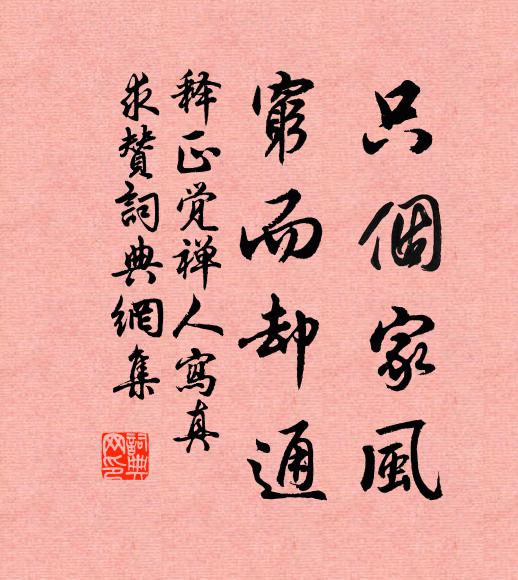 只個家風
窮而却通
释正觉禅人寫真
求贊詞典網集
詞典
网印